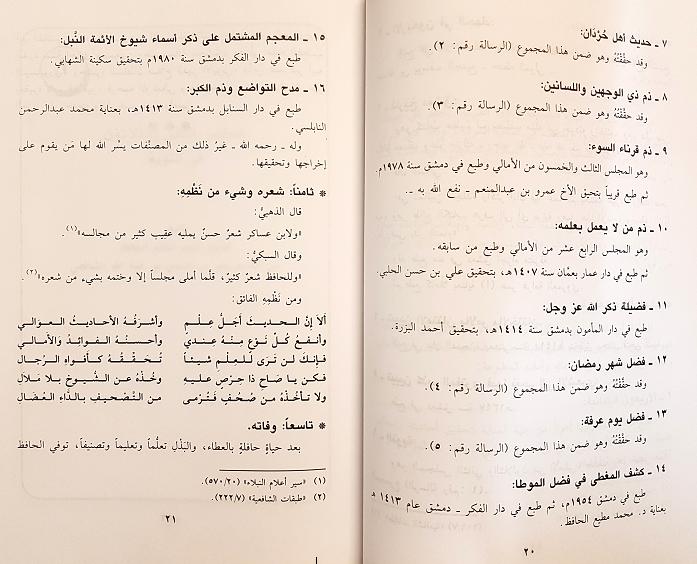 ٧ ـ حديث أهل حُرْدَان:
وقد حقَّقْتُهُ وهو ضمن هذا المجموع (الرسالة رقم: ٢).
٨ ـ ذم ذي الوجهين واللسانين:
وقد حقَّقْتُهُ وهو ضمن هذا المجموع (الرسالة رقم: ٣).
٩ ـ ذم قرناء السوء:
وهو المجلس الثالث والخمسون من الأمالي وطبع في دمشق سنة ١٩٧٨م.
ثم طبع قريباً بتحيق الأخ عمرو بن عبدالمنعم ـ نفع الله به ـ.
١٠ ـ ذم من لا يعمل بعلمه:
وهو المجلس الرابع عشر من الأمالي وطبع من سابقه.
ثم طبع في دار عمار بعمَّان سنة ١٤٠٧هـ، بتحقيق علي بن حسن الحلبي.
١١ ـ فضيلة ذكر الله عز وجل:
طبع في دار المأمون بدمشق سنة ١٤١٤هـ، بتحقيق أحمد البزرة.
١٢ ـ فضل شهر رمضان:
وقد حقَّقْتُهُ وهو ضمن هذا المجموع (الرسالة رقم: ٤).
١٣ ـ فضل يوم عرفة:
وقد حقَّقْتُهُ وهو ضمن هذا المجموع (الرسالة رقم: ٥).
١٤ ـ كشف المغطى في فضل الموطا:
طبع في دمشق ١٩٥٤م، ثم طبع في دار الفكر ـ دمشق عام ١٤١٣هـ
بعناية د. محمد مطيع الحافظ.
٢٠
١٥ ـ المعجم المشتمل على ذكر أسماء شيوخ الأئمة النُّبل:
طبع في دار الفكر بدمشق سنة ١٩٨٠م بتحقيق سكينة الشهابي.
١٦ ـ مدح التواضع وذم الكبر:
طبع في دار السنابل بدمشق سنة ١٤١٣هـ، بعناية محمد عبدالرحمن
النابلسي.
وله ـ رحمه الله ـ غيرُ ذلك من المصنَّفات يسَّر الله لها مَن يقوم على
إخراجها وتحقيقها.
* ثامناً: شعره وشيء من نَظْمِهِ:
قال الذهبيُّ:
«ولابن عساكر شعرٌ حسنٌ يمليه عقيب كثير من مجالسه»(١).
وقال السبكيُّ:
«وللحافظ شعرٌ كثيرٌ، قلَّما أملى مجلساً إلا وختمه بشيء من شعره»(٢).
ومن نَظْمِهِ الفائق:
ألاَ إنَّ الحديثَ أجَلُّ عِلْمٍ وأشرَفُهُ الأحاديثُ العوالي
وأنفعُ كُلِّ نَوْعٍ مِنْهُ عِندي وأحسنُهُ الفوائدُ والأمالي
فإنكَ لن تَرَى للعِلْمِ شيئاً تُحَقِّقُهُ كأفواهِ الرِّجالِ
فكن يا صَاحِ ذا حِرْصٍ عليهِ وخُذْهُ عن الشُّيوخِ بلا مَلالِ
ولا تأخُذْهُ من صُحُفٍ فَتُرْمَى من التَّصحيفِ بالدَّاءِ العُضَالِ
* تاسعاً: وفاته.
بعد حياةٍ حافلةٍ بالعطاء، والبَذْلِ تعلُّماً وتعليماً وتصنيفاً، توفي الحافظ
(١) «سير أعلام النبلاء» (٥٧٠/٢٠).
(٢) «طبقات الشافعية» (٢٢٢/٧).
٢١